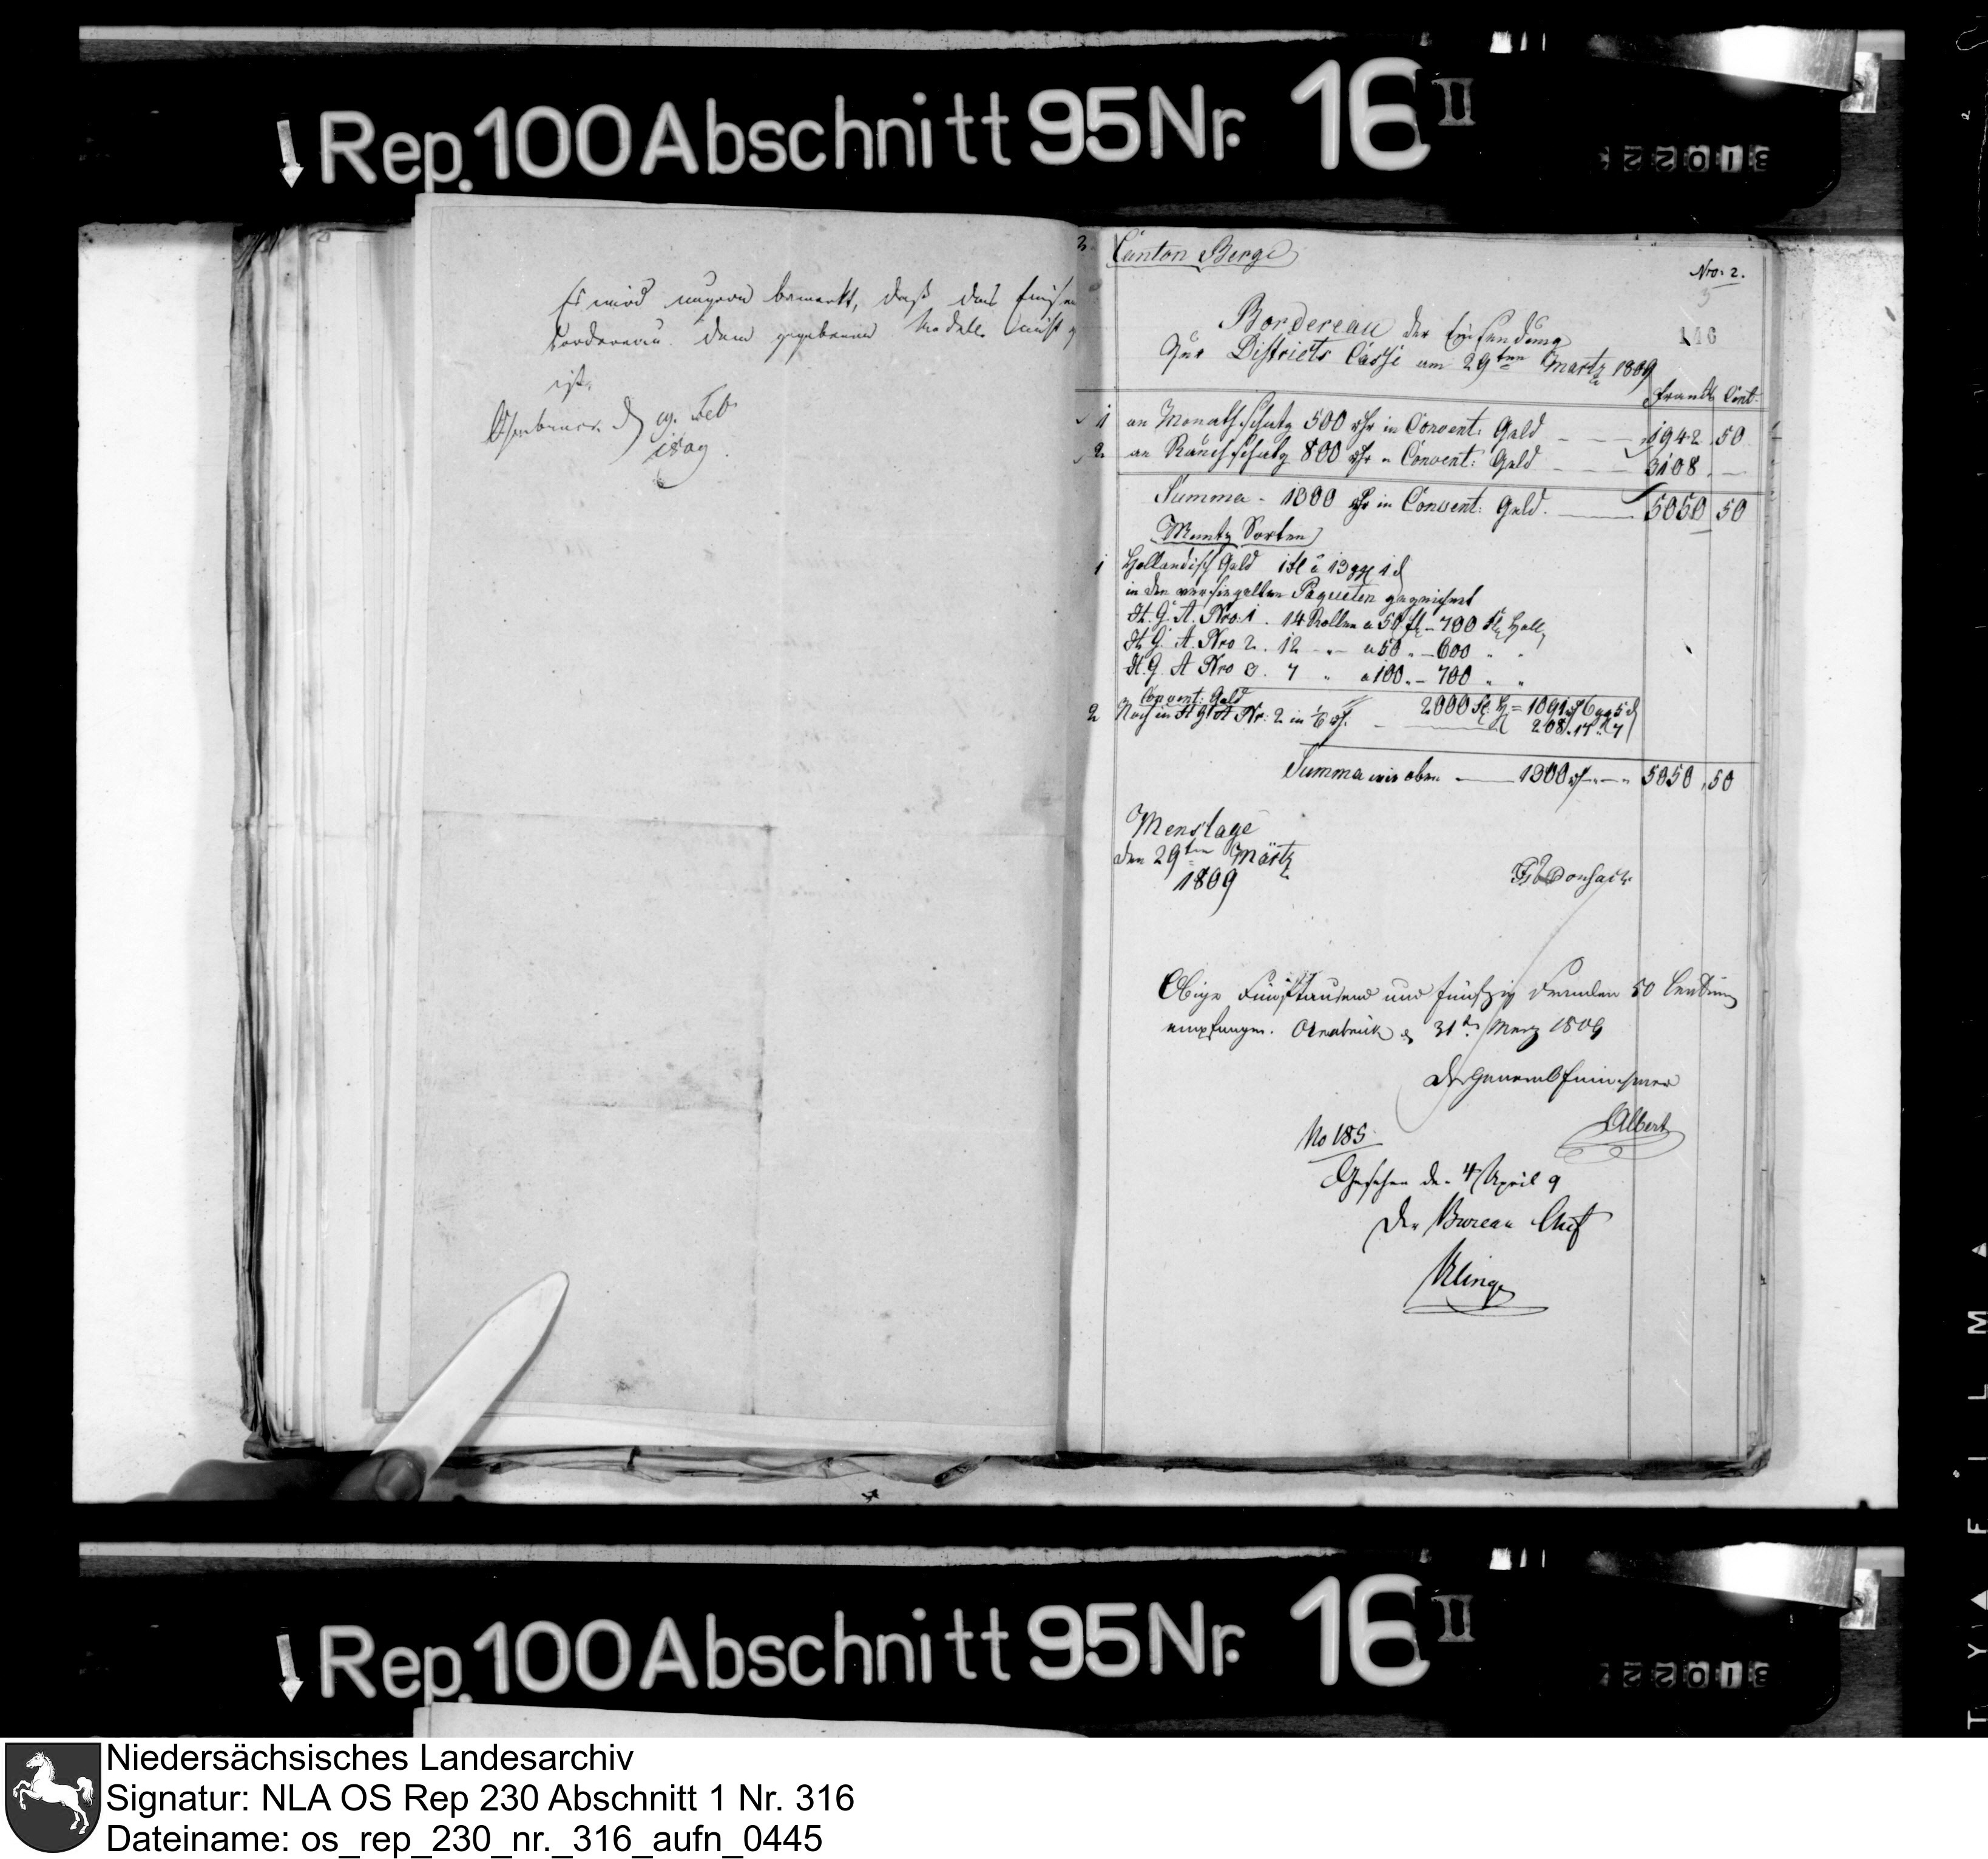 Rep. 100 Abschnitt 95 Nr. 16 II
Es wird ungern bemerkt, daß das
Bordereau dem gegebenen Modelle nicht
ist.
Osnabruck d 9. Feb
1809
3.
Canton Berge
Nro: 2.
146
Bordereau der Einsendung
Zur Districts Casse am 29ten Martz 1809
Frank Cent:
1 an Monath Schatz 500 rthr in Convent: Geld 1942 50
2 an Rauch Schatz 800 rthr " Convent: Geld 3108 —
Summa - 1300 rthr in Convent: Geld. 5050 50
Muntz Sorten
1 Holländisch Geld 1 fl a 13 ggl 1 d
in den versiegelten Paqueten gezeichnet
H. G. A. Nro. 1. 14 Rollen a 50 fl - 700 fl Holl
H. G. A. Nro 2. 12 " a 50 " - 600 " "
H. G. A Nro 3. 7 " a 100 " - 700 " "
2000 fl. H = 1091 rt 6 gg 5 d
Convent: Geld
2 Noch in H G A Nr: 2 in 1/6 rt. 208 . 17 . 7
Summa wie oben 1300 rt 5050 , 50
Menslage
den 29ten Märtz
1809
Obige Fünftausend und fünfzig Franken 50 Centimen
empfangen. Osnabrück d 31ten Merz 1809
Der General Einnehmer
Albert
No 185
Gesehen den 4 April 9
Der Bureau Chef
Kling
Rep. 100 Abschnitt 95 Nr. 16 II
Niedersächsisches Landesarchiv
Signatur: NLA OS Rep 230 Abschnitt 1 Nr. 316
Dateiname: os_rep_230_nr._316_aufn_0445